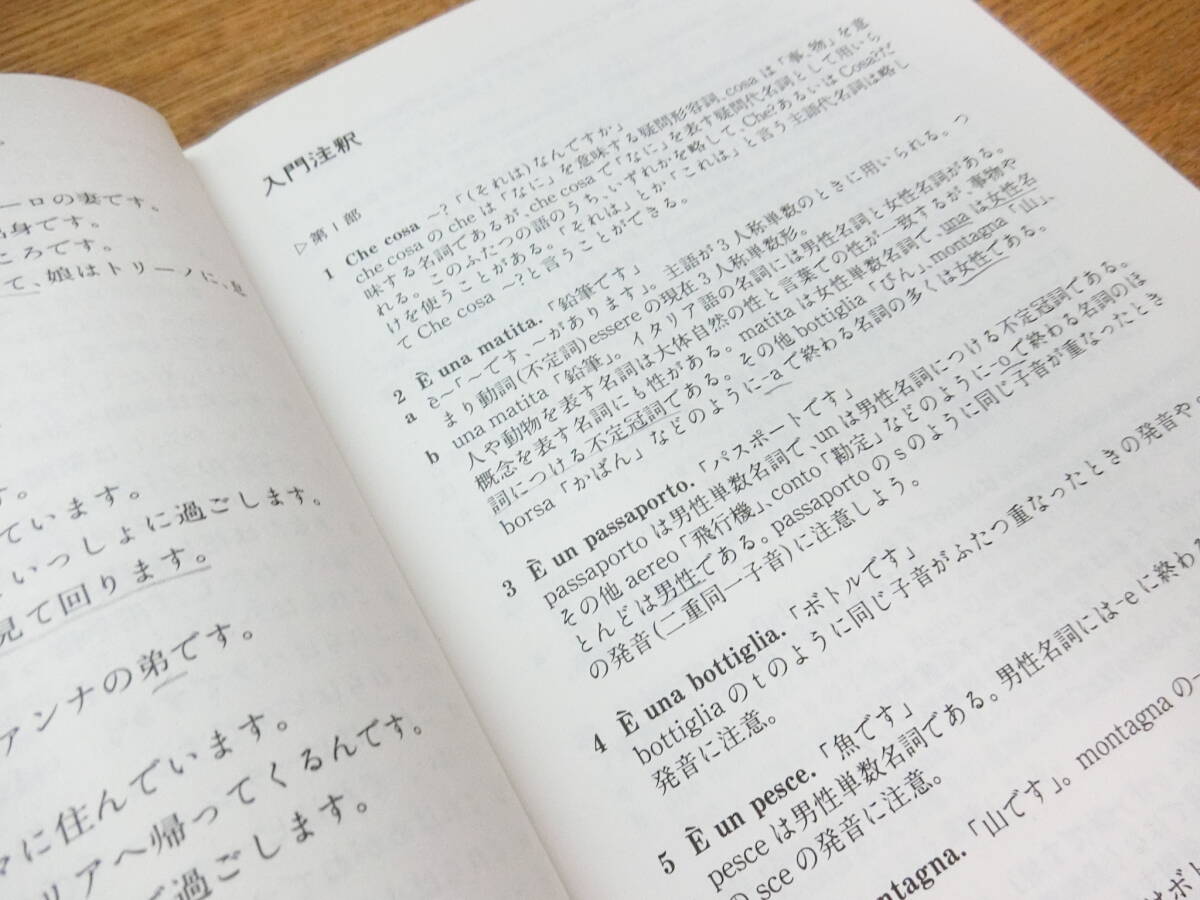 ーロの妻です。
身です。
ころです。
て、娘はトリーノに、息
す。
ています。
といっしょに過ごします。
見て回ります。
アンナの弟です。
々に住んでいます。
リアへ帰ってくるんです。
で過ごします。
入門注釈
▷第1部
1 Che cosa ~?「(それは)なんですか」
che cosa の che は「なに」を意味する疑問形容詞、cosa は「事、物」を意
味する名詞であるが、che cosa で「なに」を表す疑問代名詞として用いら
れる。このふたつの語のうち、いずれかを略して、Che?あるいは Cosa?だ
けを使うことがある。「それは」とか「これは」と言う主語代名詞は略し
て Che cosa ~?と言うことができる。
2 È una matita.「鉛筆です」
a è~「~です、~があります」。主語が3人称単数のときに用いられる。つ
まり動詞(不定詞)essere の現在3人称単数形。
b una matita「鉛筆」。イタリア語の名詞には男性名詞と女性名詞がある。
人や動物を表す名詞は大体自然の性と言葉での性が一致するが、事物や
概念を表す名詞にも性がある。matita は女性単数名詞で、una は女性名
詞につける不定冠詞である。その他 bottiglia「びん」、montagna「山」、
borsa「かばん」などのように-a で終わる名詞の多くは女性である。
3 È un passaporto.「パスポートです」
passaporto は男性単数名詞で、un は男性名詞につける不定冠詞である。
その他 aereo「飛行機」、conto「勘定」などのように-o で終わる名詞のほ
とんどは男性である。passaporto の s のように同じ子音が重なったとき
の発音(二重同一子音)に注意しよう。
4 È una bottiglia.「ボトルです」
bottiglia の t のように同じ子音がふたつ重なったときの発音や
発音に注意。
5 È un pesce.「魚です」
pesce は男性単数名詞である。男性名詞には-e に終わる
の sce の発音に注意。
ntagna.「山です」。montagna の
はボト